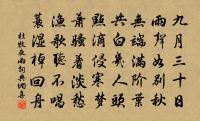 九月三十日
雨聲如別秋
無端滿階葉
共白幾人頭
點滴侵寒夢
蕭騷著淡愁
漁歌聽不唱
蓑濕棹回舟
杜牧夜雨